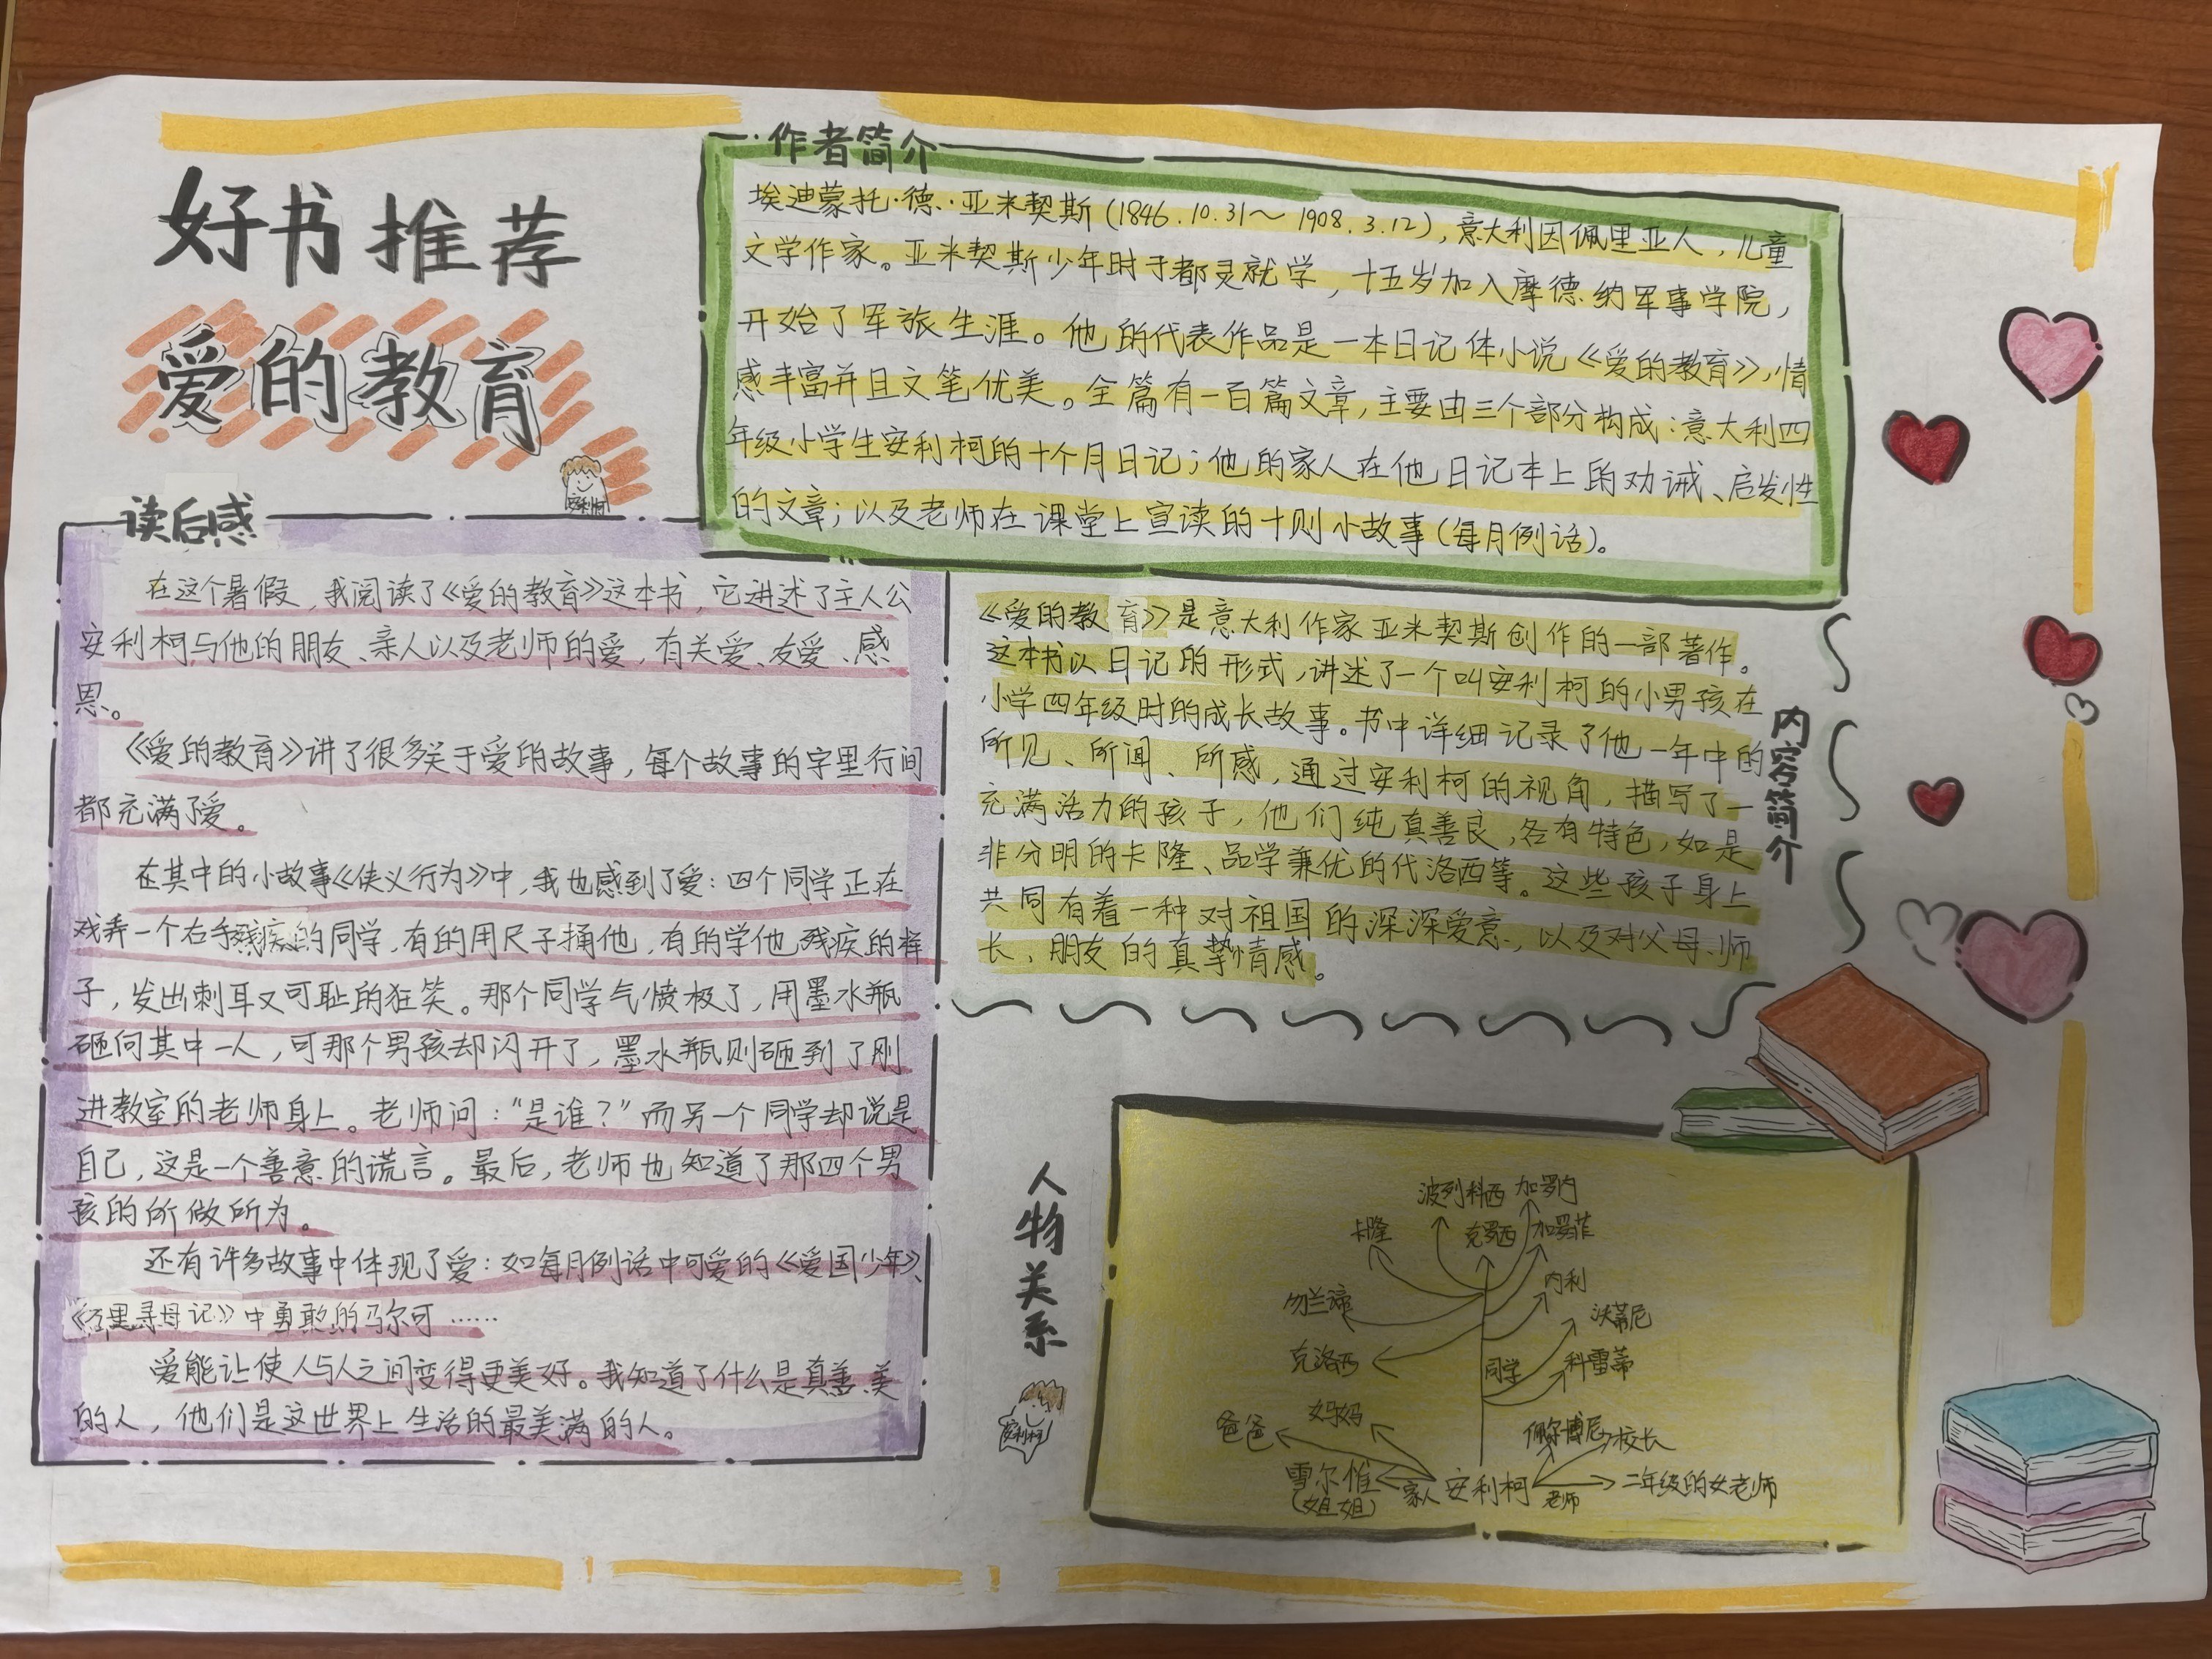 好书推荐
爱的教育
安利柯
作者简介
埃迪蒙托·德·亚米契斯(1846.10.31～1908.3.12),意大利因佩里亚人,儿童
文学作家。亚米契斯少年时于都灵就学,十五岁加入摩德纳军事学院,
开始了军旅生涯。他的代表作品是一本日记体小说《爱的教育》,情
感丰富并且文笔优美。全篇有一百篇文章,主要由三个部分构成:意大利四
年级小学生安利柯的十个月日记;他的家人在他日记本上的劝诫、启发性
的文章;以及老师在课堂上宣读的十则小故事(每月例话)。
读后感
在这个暑假,我阅读了《爱的教育》这本书,它讲述了主人公
安利柯与他的朋友、亲人以及老师的爱,有关爱、友爱、感
恩。
《爱的教育》讲了很多关于爱的故事,每个故事的字里行间
都充满了爱。
在其中的小故事《侠义行为》中,我也感到了爱:四个同学正在
戏弄一个右手残疾的同学,有的用尺子捅他,有的学他残疾的样
子,发出刺耳又可耻的狂笑。那个同学气愤极了,用墨水瓶
砸向其中一人,可那个男孩却闪开了,墨水瓶则砸到了刚
进教室的老师身上。老师问:“是谁?”而另一个同学却说是
自己,这是一个善意的谎言。最后,老师也知道了那四个男
孩的所做所为。
还有许多故事中体现了爱:如每月例话中可爱的《爱国少年》、
《万里寻母记》中勇敢的马尔可……
爱能让使人与人之间变得更美好。我知道了什么是真善、美
的人,他们是这世界上生活的最美满的人。
内容简介
《爱的教育》是意大利作家亚米契斯创作的一部著作。
这本书以日记的形式,讲述了一个叫安利柯的小男孩在
小学四年级时的成长故事。书中详细记录了他一年中的
所见、所闻、所感,通过安利柯的视角,描写了一
充满活力的孩子,他们纯真善良,各有特色,如是
非分明的卡隆、品学兼优的代洛西等。这些孩子身上
共同有着一种对祖国的深深爱意,以及对父母、师
长、朋友的真挚情感。
人物关系
安利柯
波列科西 加罗内
卡隆 克罗西 加罗菲
勿兰谛 内利
沃蒂尼
克洛西 同学 科雷蒂
爸爸 妈妈 佩尔博尼 校长
雪尔惟 家人 安利柯 老师 二年级的女老师
(姐姐)